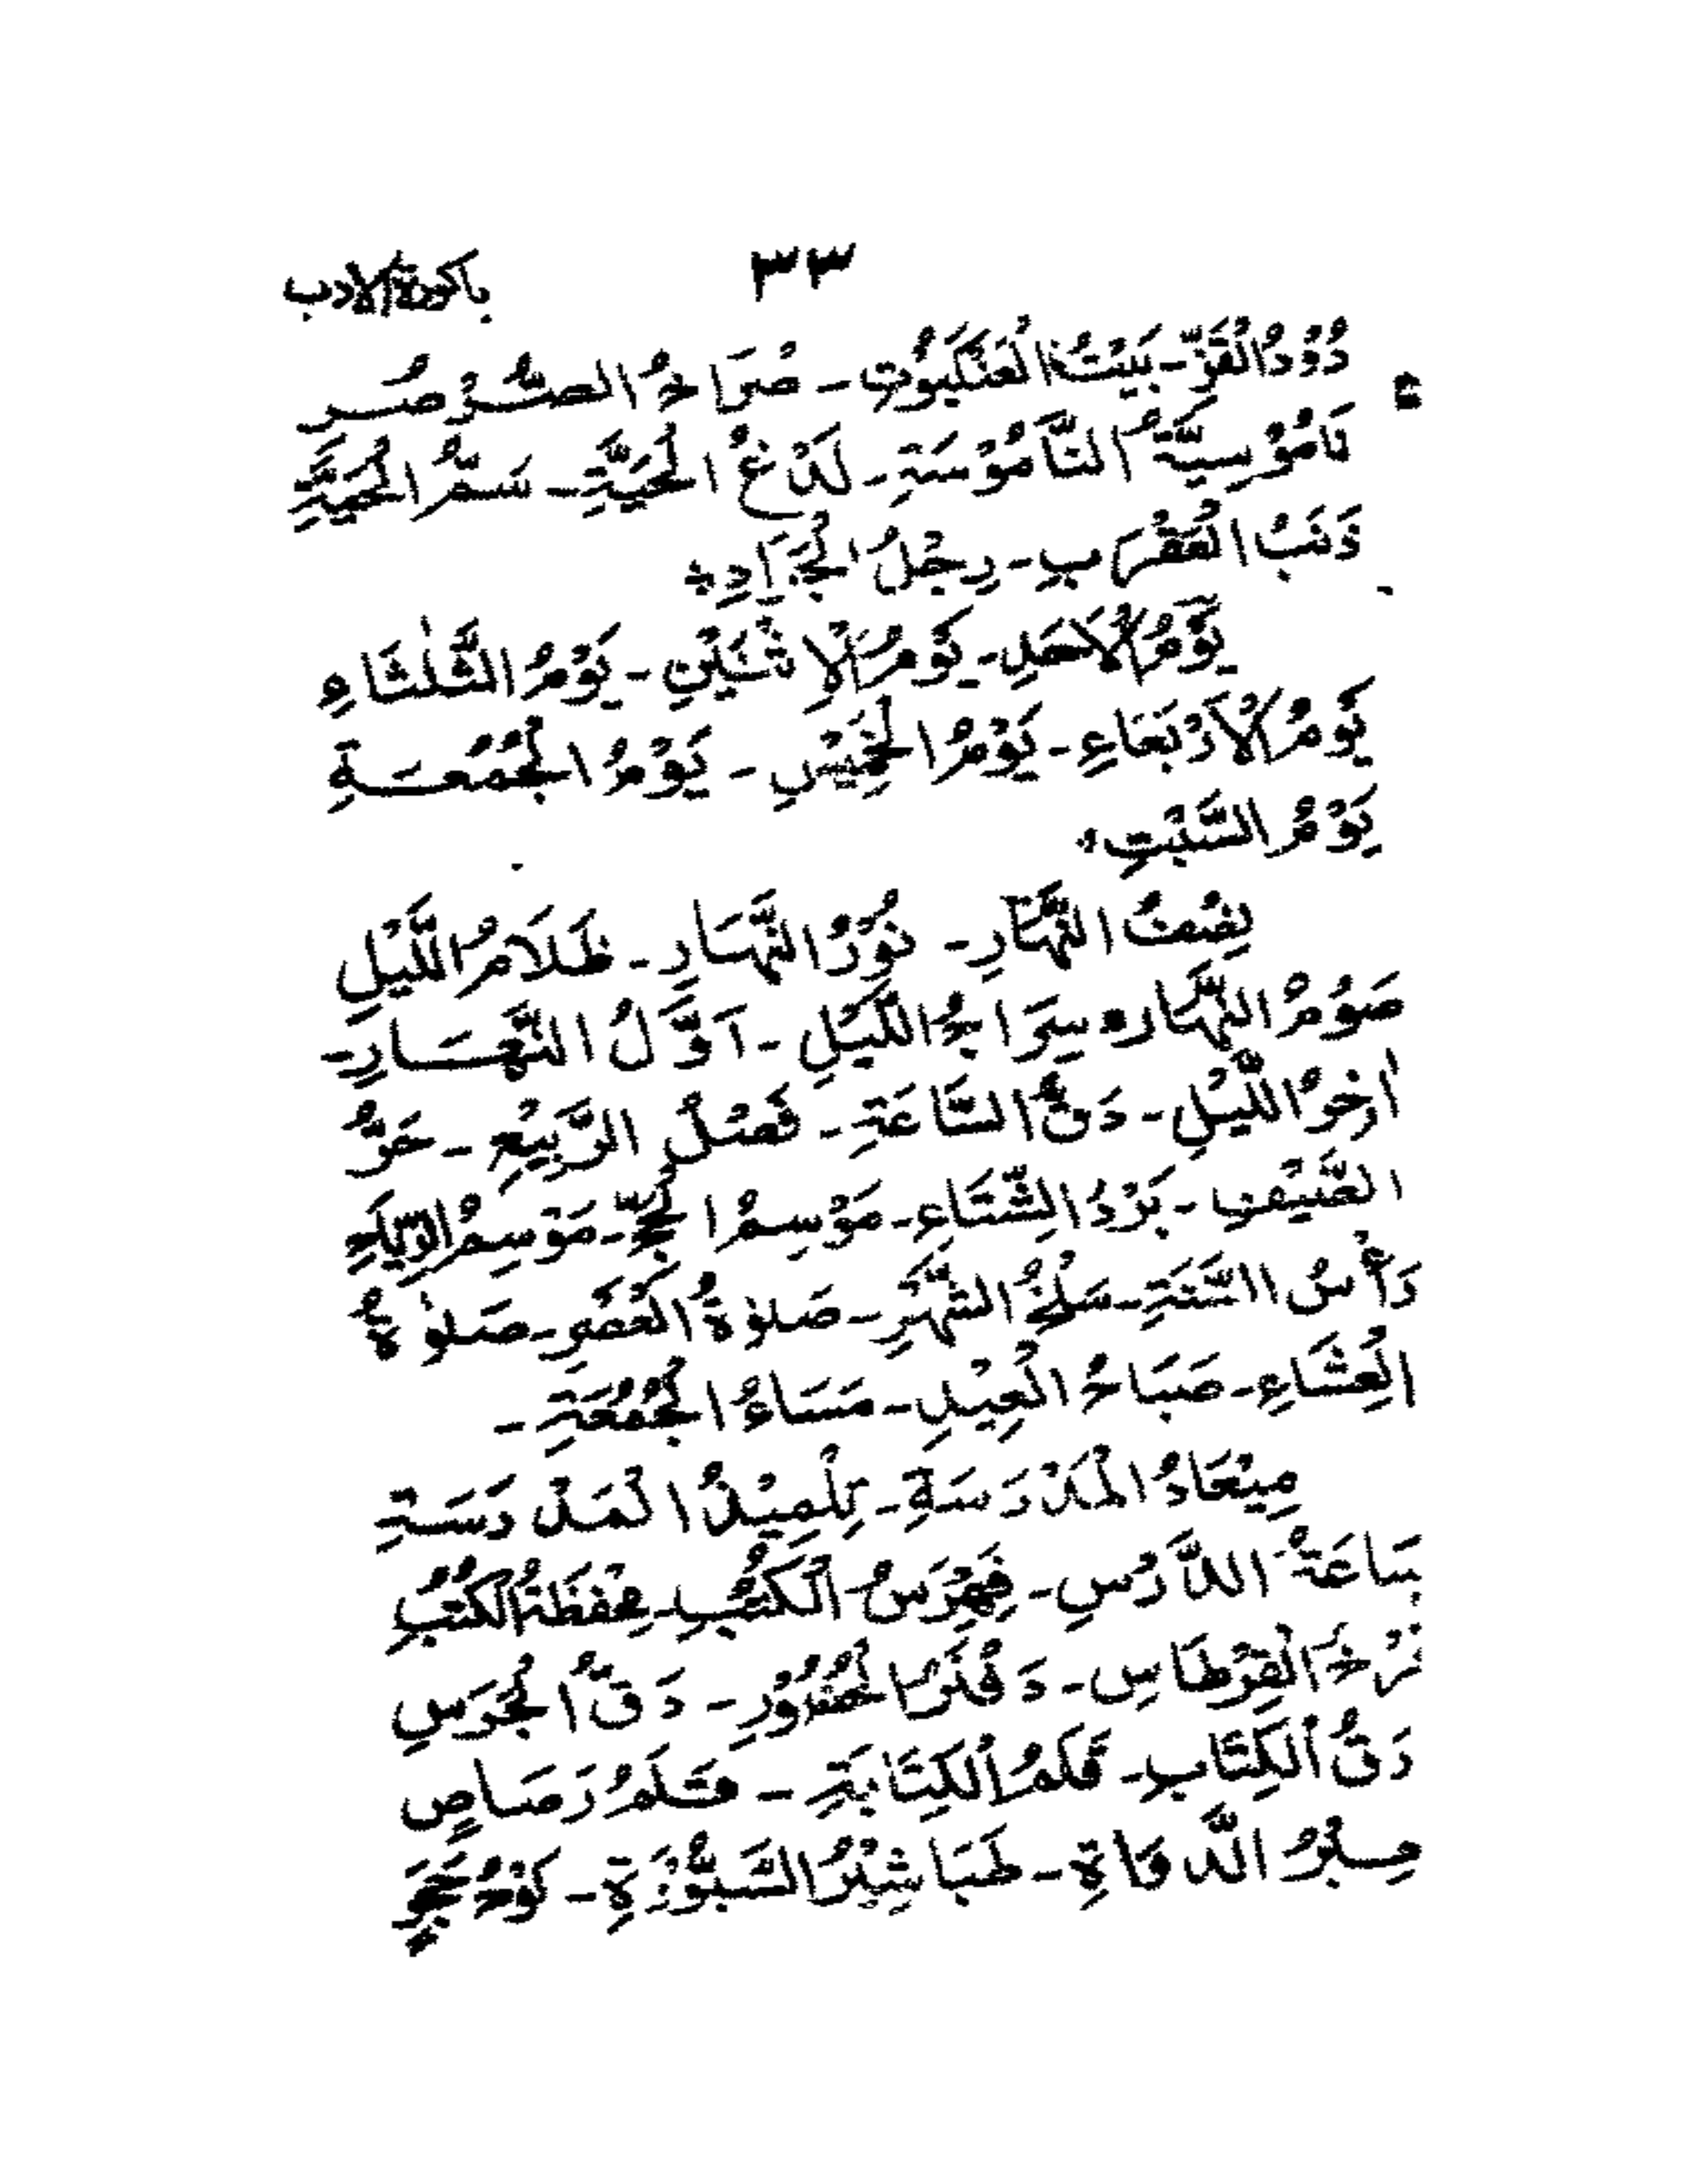 باكورة الادب
٣٣
دُوْدُ الْقَزِّ۔ بَيْتُ الْعَنْكَبُوْتِ۔ صُرَاخُ الصُّرْصُرِ
نَامُوْسِيَّةُ النَّامُوْسَةِ۔ لَدْغُ الْحَيَّةِ۔ سَمُّ الْحَيَّةِ
ذَنَبُ الْعَقْرَبِ۔ رِجْلُ الْجَرَادِ۔
يَوْمُ الْاَحَدِ۔ يَوْمُ الْاِثْنَيْنِ۔ يَوْمُ الثَّلٰثَاءِ
يَوْمُ الْاَرْبَعَاءِ۔ يَوْمُ الْخَمِيْسِ۔ يَوْمُ الْجُمُعَةِ
يَوْمُ السَّبْتِ۔
نِصْفُ النَّهَارِ۔ نُوْرُ النَّهَارِ۔ ظَلَامُ اللَّيْلِ
صَوْمُ النَّهَارِ۔ سِرَاجُ اللَّيْلِ۔ اَوَّلُ النَّهَارِ۔
اٰخِرُ اللَّيْلِ۔ دَقُّ السَّاعَةِ۔ فَصْلُ الرَّبِيْعِ۔ حَرُّ
الصَّيْفِ۔ بَرْدُ الشِّتَاءِ۔ مَوْسِمُ الْحَجِّ۔ مَوْسِمُ
رَأْسُ السَّنَةِ۔ سَلْخُ الشَّهْرِ۔ صَلٰوةُ الْعَصْرِ۔ صَلٰوةُ
الْعِشَاءِ۔ صَبَاحُ الْعِيْدِ۔ مَسَاءُ الْجُمُعَةِ۔
مِيْعَادُ الْمَدْرَسَةِ۔ تِلْمِيْذُ الْمَدْرَسَةِ
سَاعَةُ الدَّرْسِ۔ فِهْرَسُ الْكُتُبِ۔ مِحْفَظَةُ الْكُتُبِ
فَرْخُ الْقِرْطَاسِ۔ دَفْتَرُ الْحُضُوْرِ۔ دَقُّ الْجَرَسِ
دَفُّ الْكِتَابِ۔ قَلَمُ الْكِتَابَةِ۔ قَلَمُ رَصَاصٍ
حِبْرُ الدَّوَاةِ۔ طَبَاشِيْرُ السَّبُّوْرَةِ۔ لَوْحُ حَجَرٍ